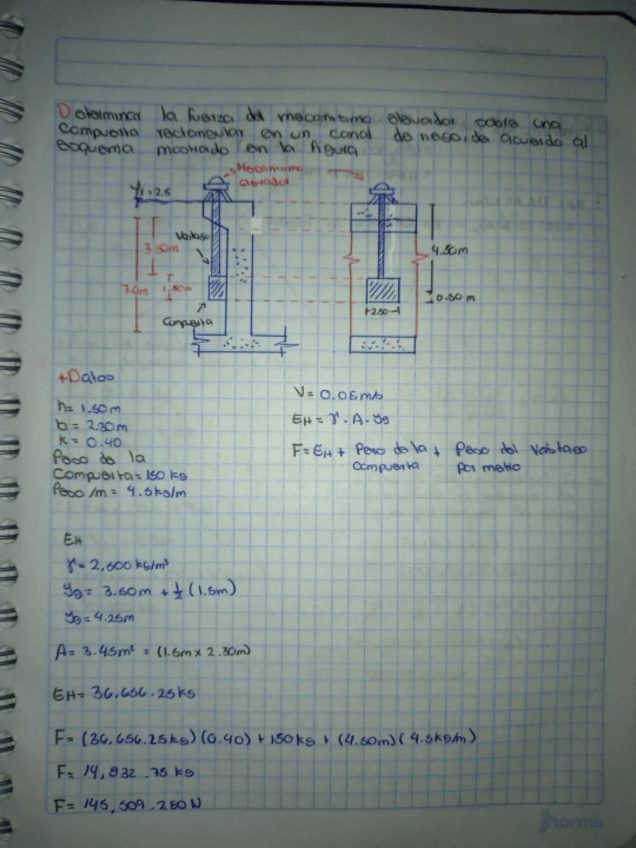 Determinar la fuerza del mecanismo elevador sobre una
compuerta rectangular en un canal de riego, de acuerdo al
esquema mostrado en la figura
Mecanismo
elevador
Vastago
3.50m
7.0m
1.50m
Compuerta
4.50m
0.50 m
+Datos
h= 1.50m
b= 2.30m
k= 0.40
Peso de la
Compuerta= 150 kg
Peso/m = 4.5kg/m
V= 0.05m/s
EH= γ · A · yg
F= EH + Peso de la + Peso del Vastago
compuerta por metro
EH
γ= 2,500 kg/m³
yg= 3.50m + ½ (1.5m)
yg= 4.25m
A= 3.45m² = (1.5m x 2.30m)
EH= 36,656.25kg
F= (36,656.25kg)(0.40) + 150kg + (4.50m)(4.5kg/m)
F= 14,832.75 kg
F= 145,509.280N
Norma